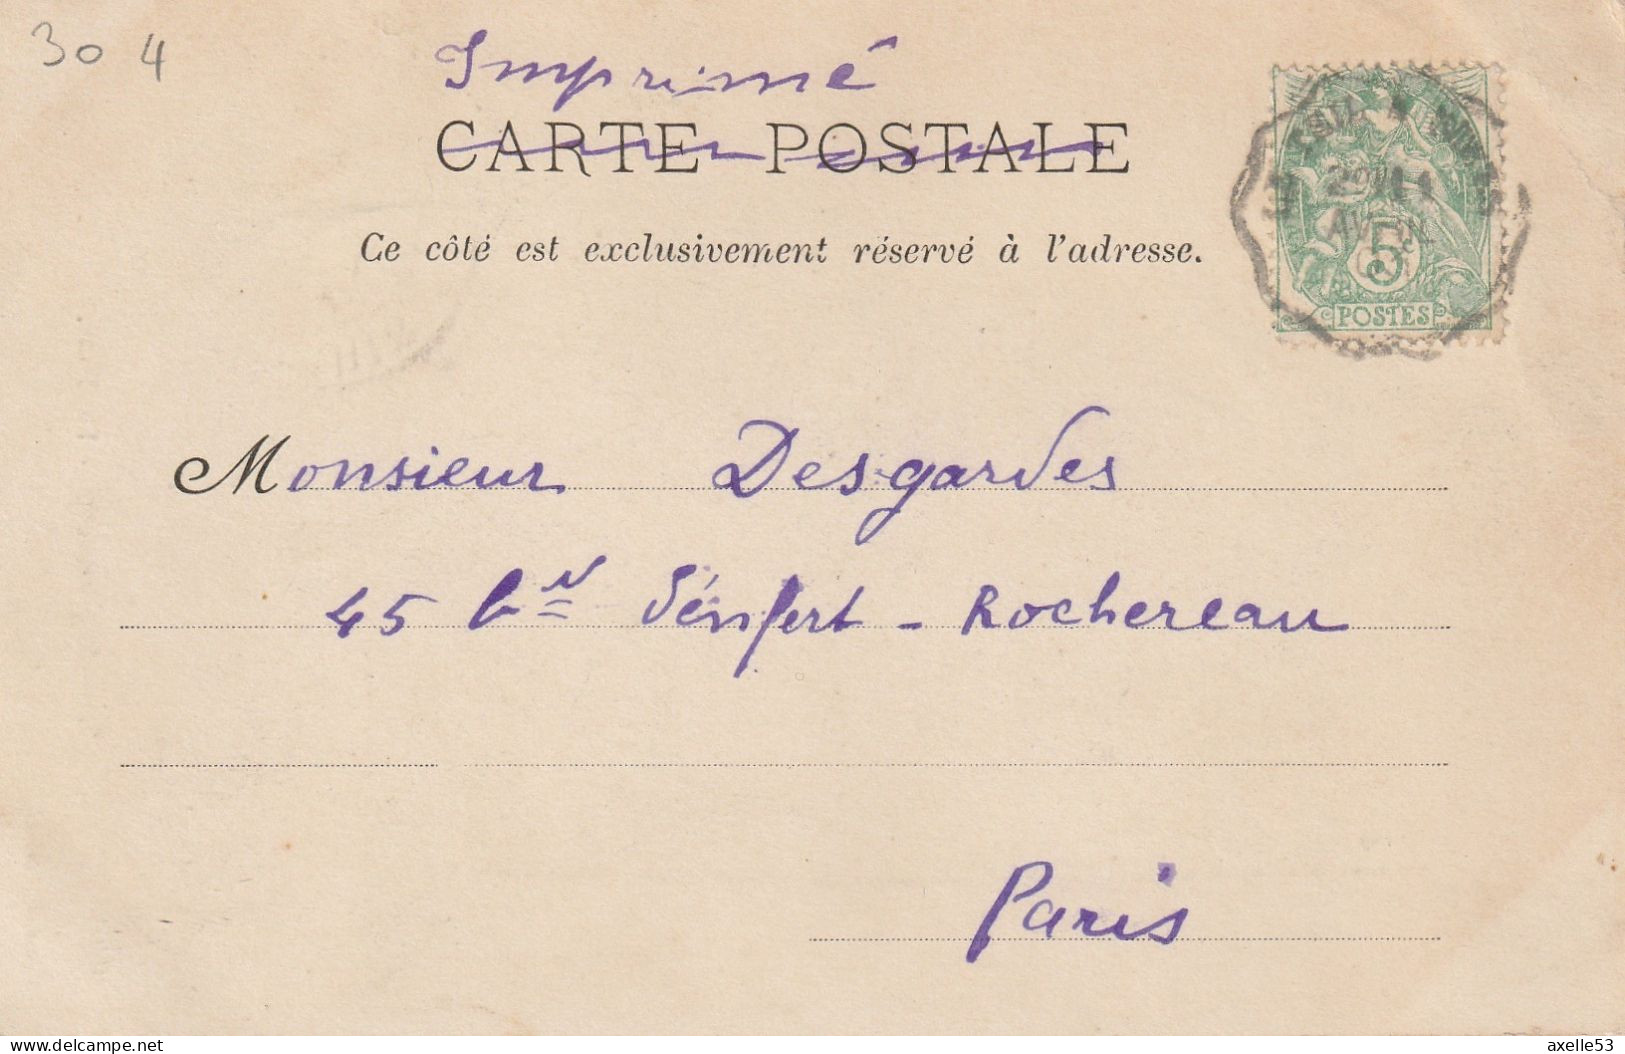 30 4
Imprimé
CARTE POSTALE
Ce côté est exclusivement réservé à l'adresse.
5c
POSTES
Monsieur Desgardes
45 bd Dénfert - Rochereau
Paris
axelle53